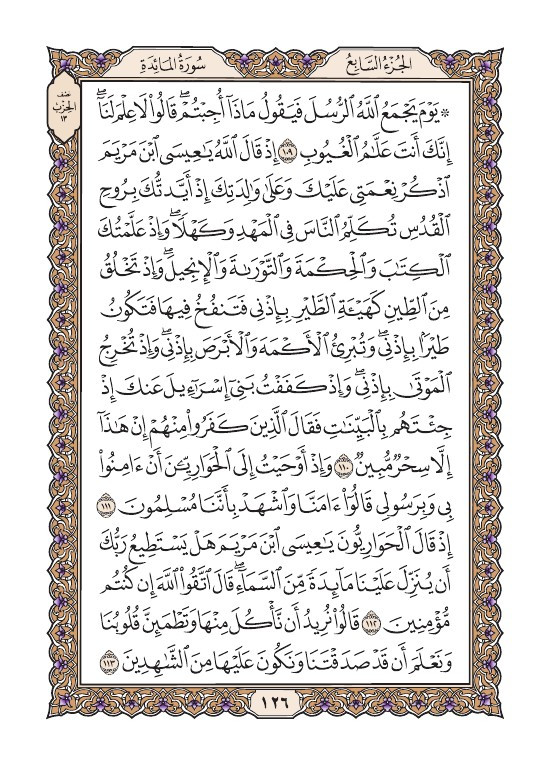 الجُزْءُ السَّابِعُ
سُورَةُ المَائِدَةِ
نِصْفُ
الحِزْبِ
١٣
۞ يَوْمَ يَجْمَعُ ٱللَّهُ ٱلرُّسُلَ فَيَقُولُ مَاذَآ أُجِبْتُمْۖ قَالُوا۟ لَا عِلْمَ لَنَآۖ
إِنَّكَ أَنتَ عَلَّٰمُ ٱلْغُيُوبِ ١٠٩ إِذْ قَالَ ٱللَّهُ يَٰعِيسَى ٱبْنَ مَرْيَمَ
ٱذْكُرْ نِعْمَتِى عَلَيْكَ وَعَلَىٰ وَٰلِدَتِكَ إِذْ أَيَّدتُّكَ بِرُوحِ
ٱلْقُدُسِ تُكَلِّمُ ٱلنَّاسَ فِى ٱلْمَهْدِ وَكَهْلًاۖ وَإِذْ عَلَّمْتُكَ
ٱلْكِتَٰبَ وَٱلْحِكْمَةَ وَٱلتَّوْرَىٰةَ وَٱلْإِنجِيلَۖ وَإِذْ تَخْلُقُ
مِنَ ٱلطِّينِ كَهَيْـَٔةِ ٱلطَّيْرِ بِإِذْنِى فَتَنفُخُ فِيهَا فَتَكُونُ
طَيْرًۢا بِإِذْنِىۖ وَتُبْرِئُ ٱلْأَكْمَهَ وَٱلْأَبْرَصَ بِإِذْنِىۖ وَإِذْ تُخْرِجُ
ٱلْمَوْتَىٰ بِإِذْنِىۖ وَإِذْ كَفَفْتُ بَنِىٓ إِسْرَٰٓءِيلَ عَنكَ إِذْ
جِئْتَهُم بِٱلْبَيِّنَٰتِ فَقَالَ ٱلَّذِينَ كَفَرُوا۟ مِنْهُمْ إِنْ هَٰذَآ
إِلَّا سِحْرٌ مُّبِينٌ ١١٠ وَإِذْ أَوْحَيْتُ إِلَى ٱلْحَوَارِيِّـۧنَ أَنْ ءَامِنُوا۟
بِى وَبِرَسُولِى قَالُوٓا۟ ءَامَنَّا وَٱشْهَدْ بِأَنَّنَا مُسْلِمُونَ ١١١
إِذْ قَالَ ٱلْحَوَارِيُّونَ يَٰعِيسَى ٱبْنَ مَرْيَمَ هَلْ يَسْتَطِيعُ رَبُّكَ
أَن يُنَزِّلَ عَلَيْنَا مَآئِدَةً مِّنَ ٱلسَّمَآءِۖ قَالَ ٱتَّقُوا۟ ٱللَّهَ إِن كُنتُم
مُّؤْمِنِينَ ١١٢ قَالُوا۟ نُرِيدُ أَن نَّأْكُلَ مِنْهَا وَتَطْمَئِنَّ قُلُوبُنَا
وَنَعْلَمَ أَن قَدْ صَدَقْتَنَا وَنَكُونَ عَلَيْهَا مِنَ ٱلشَّٰهِدِينَ ١١٣
١٢٦